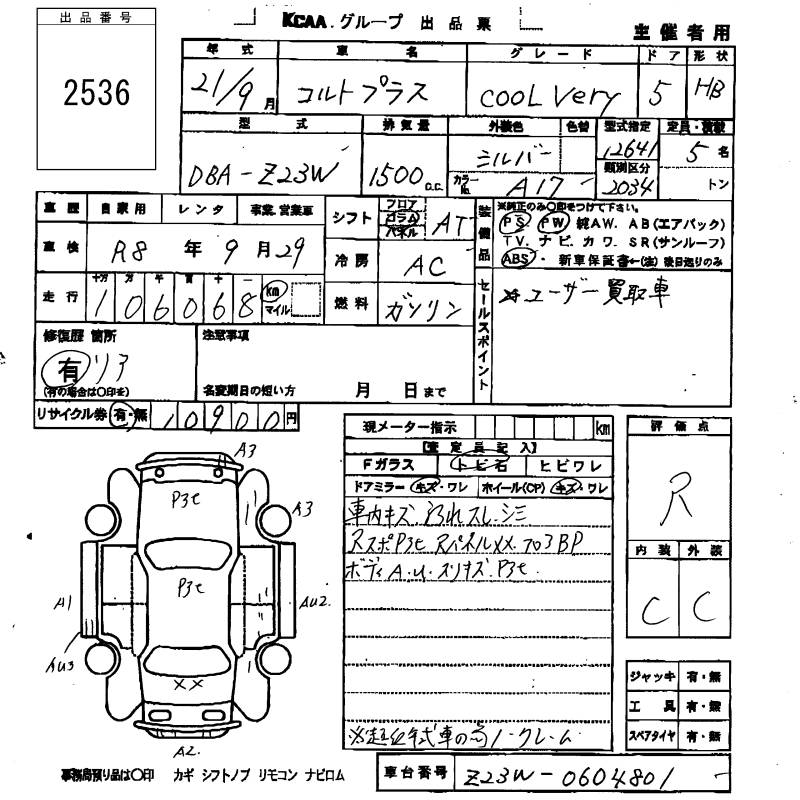 出品番号
2536
KCAA.グループ 出品票
主催者用
年式 車名 グレード ドア 形状
21/9月 コルトプラス COOL Very 5 HB
型式 排気量 外装色 色替 型式指定 定員・積載
DBA-Z23W 1500c.c. シルバー 12641 5名
カラーNo. A17 類別区分 2034 トン
車歴 自家用 レンタ 事業.営業車
車検 R8年9月29
走行 十万 万 千 百 十 一
106068 km マイル
シフト フロア コラム パネル AT
冷房 AC
燃料 ガソリン
装備品
※純正のみ○印をつけて下さい。
PS PW 純AW. AB(エアバック)
TV. ナビ. カワ. SR(サンルーフ)
ABS・ 新車保証書←(注)後日送りのみ
セールスポイント
☆ユーザー買取車
修復歴 箇所
有 リア
(有の場合は○印を)
注意事項
名変期日の短い方 月 日まで
リサイクル券 有・無 10900円
現メーター指示 km
【査定員記入】
Fガラス トビ石 ヒビワレ
ドアミラー キズ・ワレ ホイール(CP) キズ・ワレ
車内キズ.汚れスレ.シミ
RスポP3t RパネルXX.フロ3BP
ボディA.u.スリキズ.P3t.
※超低年式車の為ノークレーム
評価点
R
内装 外装
C C
ジャッキ 有・無
工具 有・無
スペアタイヤ 有・無
A3
P3t
A3
P3t
A1
AU2.
AU3
XX
A2.
事務局預り品は○印 カギ シフトノブ リモコン ナビロム
車台番号 Z23W-0604801